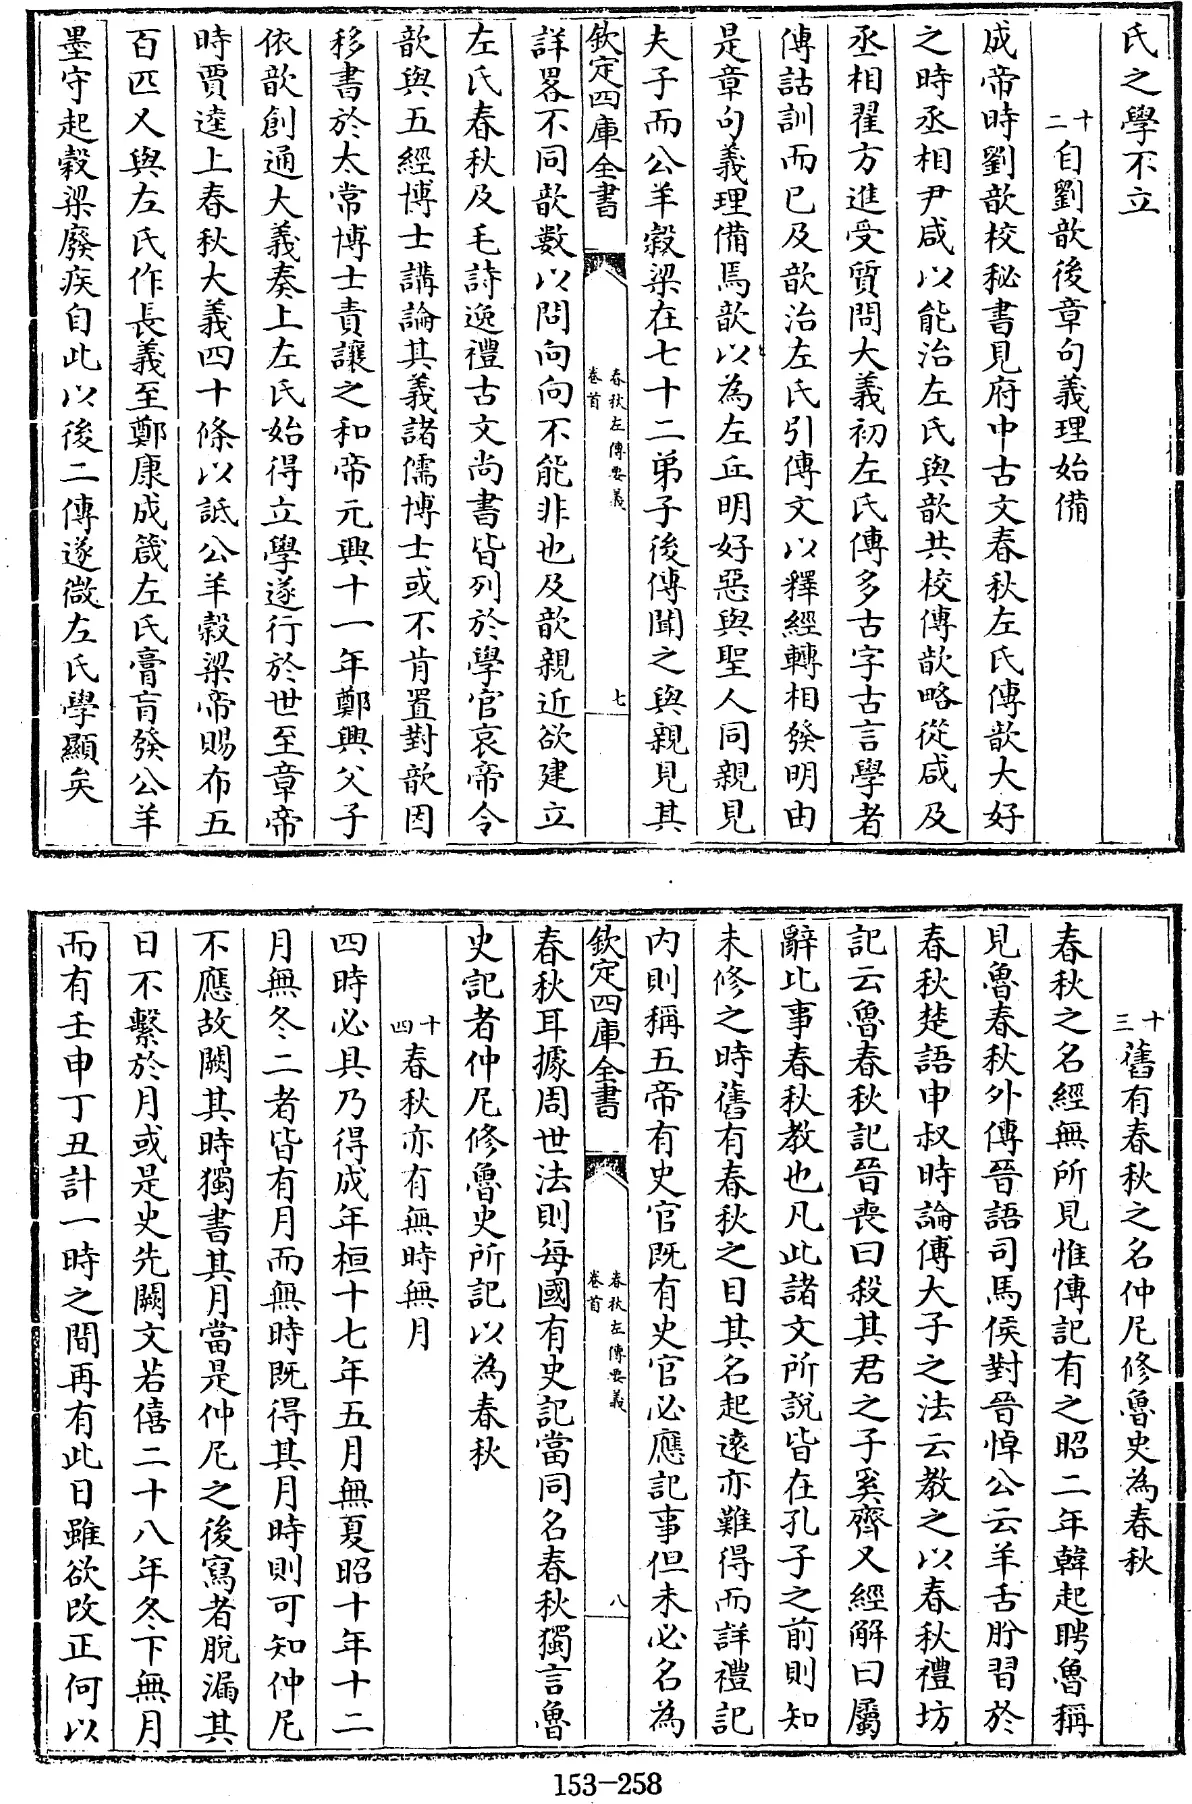 氏之學不立
十二自劉歆後章句義理始備
成帝時劉歆校秘書見府中古文春秋左氏傳歆大好
之時丞相尹咸以能治左氏與歆共校傳歆略從咸及
丞相翟方進受質問大義初左氏傳多古字古言學者
傳詁訓而已及歆治左氏引傳文以釋經轉相發明由
是章句義理備焉歆以為左丘明好惡與聖人同親見
夫子而公羊穀梁在七十二弟子後傳聞之與親見其
欽定四庫全書
春秋左傳要義
卷首
七
詳畧不同歆數以問向向不能非也及歆親近欲建立
左氏春秋及毛詩逸禮古文尚書皆列於學官哀帝令
歆與五經博士講論其義諸儒博士或不肯置對歆因
移書於太常博士責讓之和帝元興十一年鄭興父子
依歆創通大義奏上左氏始得立學遂行於世至章帝
時賈逵上春秋大義四十條以詆公羊穀梁帝賜布五
百匹又與左氏作長義至鄭康成箴左氏膏肓發公羊
墨守起穀梁廢疾自此以後二傳遂微左氏學顯矣
十三舊有春秋之名仲尼修魯史為春秋
春秋之名經無所見惟傳記有之昭二年韓起聘魯稱
見魯春秋外傳晉語司馬侯對晉悼公云羊舌肸習於
春秋楚語申叔時論傳大子之法云教之以春秋禮坊
記云魯春秋記晉喪曰殺其君之子奚齊又經解曰屬
辭比事春秋教也凡此諸文所說皆在孔子之前則知
未修之時舊有春秋之目其名起遠亦難得而詳禮記
內則稱五帝有史官既有史官必應記事但未必名為
欽定四庫全書
春秋左傳要義
卷首
八
春秋耳據周世法則每國有史記當同名春秋獨言魯
史記者仲尼修魯史所記以為春秋
十四春秋亦有無時無月
四時必具乃得成年桓十七年五月無夏昭十年十二
月無冬二者皆有月而無時既得其月時則可知仲尼
不應故闕其時獨書其月當是仲尼之後寫者脫漏其
日不繫於月或是史先闕文若僖二十八年冬下無月
而有壬申丁丑計一時之間再有此日雖欲改正何以
153-258